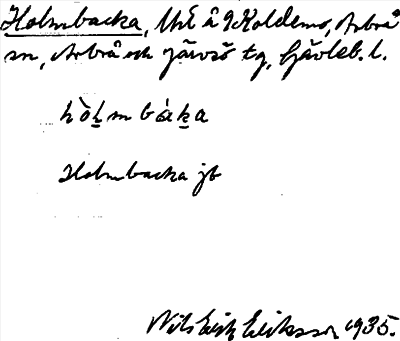 Holmbacka, Uhl å Koldemo, Arbrå
sn, Arbrå och Järvsö tg, Gävleb. l.
hòl̠m bák̠a
Holmbacka jb
Nils Erik Eriksson 1935.